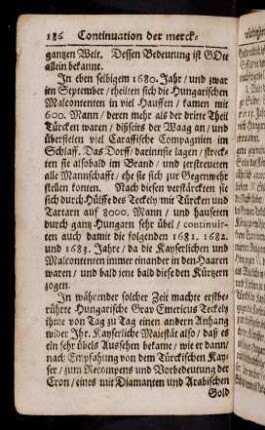 186 Continuation der merck-
gantzen Welt. Dessen Bedeutung ist GOtt
allein bekannt.
In eben selbigem 1680. Jahr / und zwar
im September / theilten sich die Hungarischen
Malcontenten in viel Hauffen / kamen mit
600. Mann / deren mehr als der dritte Theil
Türcken waren / disseits der Waag an / und
überfielen viel Caraffische Compagnien im
Schlaff. Das Dorff / darinnen sie lagen / steck-
ten sie alsobald im Brand / und zerstreueten
alle Mannschafft / ehe sie sich zur Gegenwehr
stellen konten. Nach diesen verstärckten sie
sich durch Hülffe des Teckely mit Türcken und
Tartarn auf 8000. Mann / und hauseten
durch gantz Hungarn sehr übel / continuir-
ten auch damit die folgenden 1681. 1682.
und 1683. Jahre / da die Kayserlichen und
Malcontenten immer einander in den Haaren
waren / und bald jene bald diese den Kürtzern
zogen.
In währender solcher Zeit machte erstbe-
rührte Hungarische Grav Emericus Teckely
ihme von Tag zu Tag einen andern Anhang
wider Ihr. Kayserliche Majestät also / daß es
ein sehr übels Aussehen bekame / wie er dann /
nach Empfahung von dem Türckischen Kay-
ser / zum Recompens und Vorbedeutung der
Cron / eines mit Diamanten und Arabischen
Gold